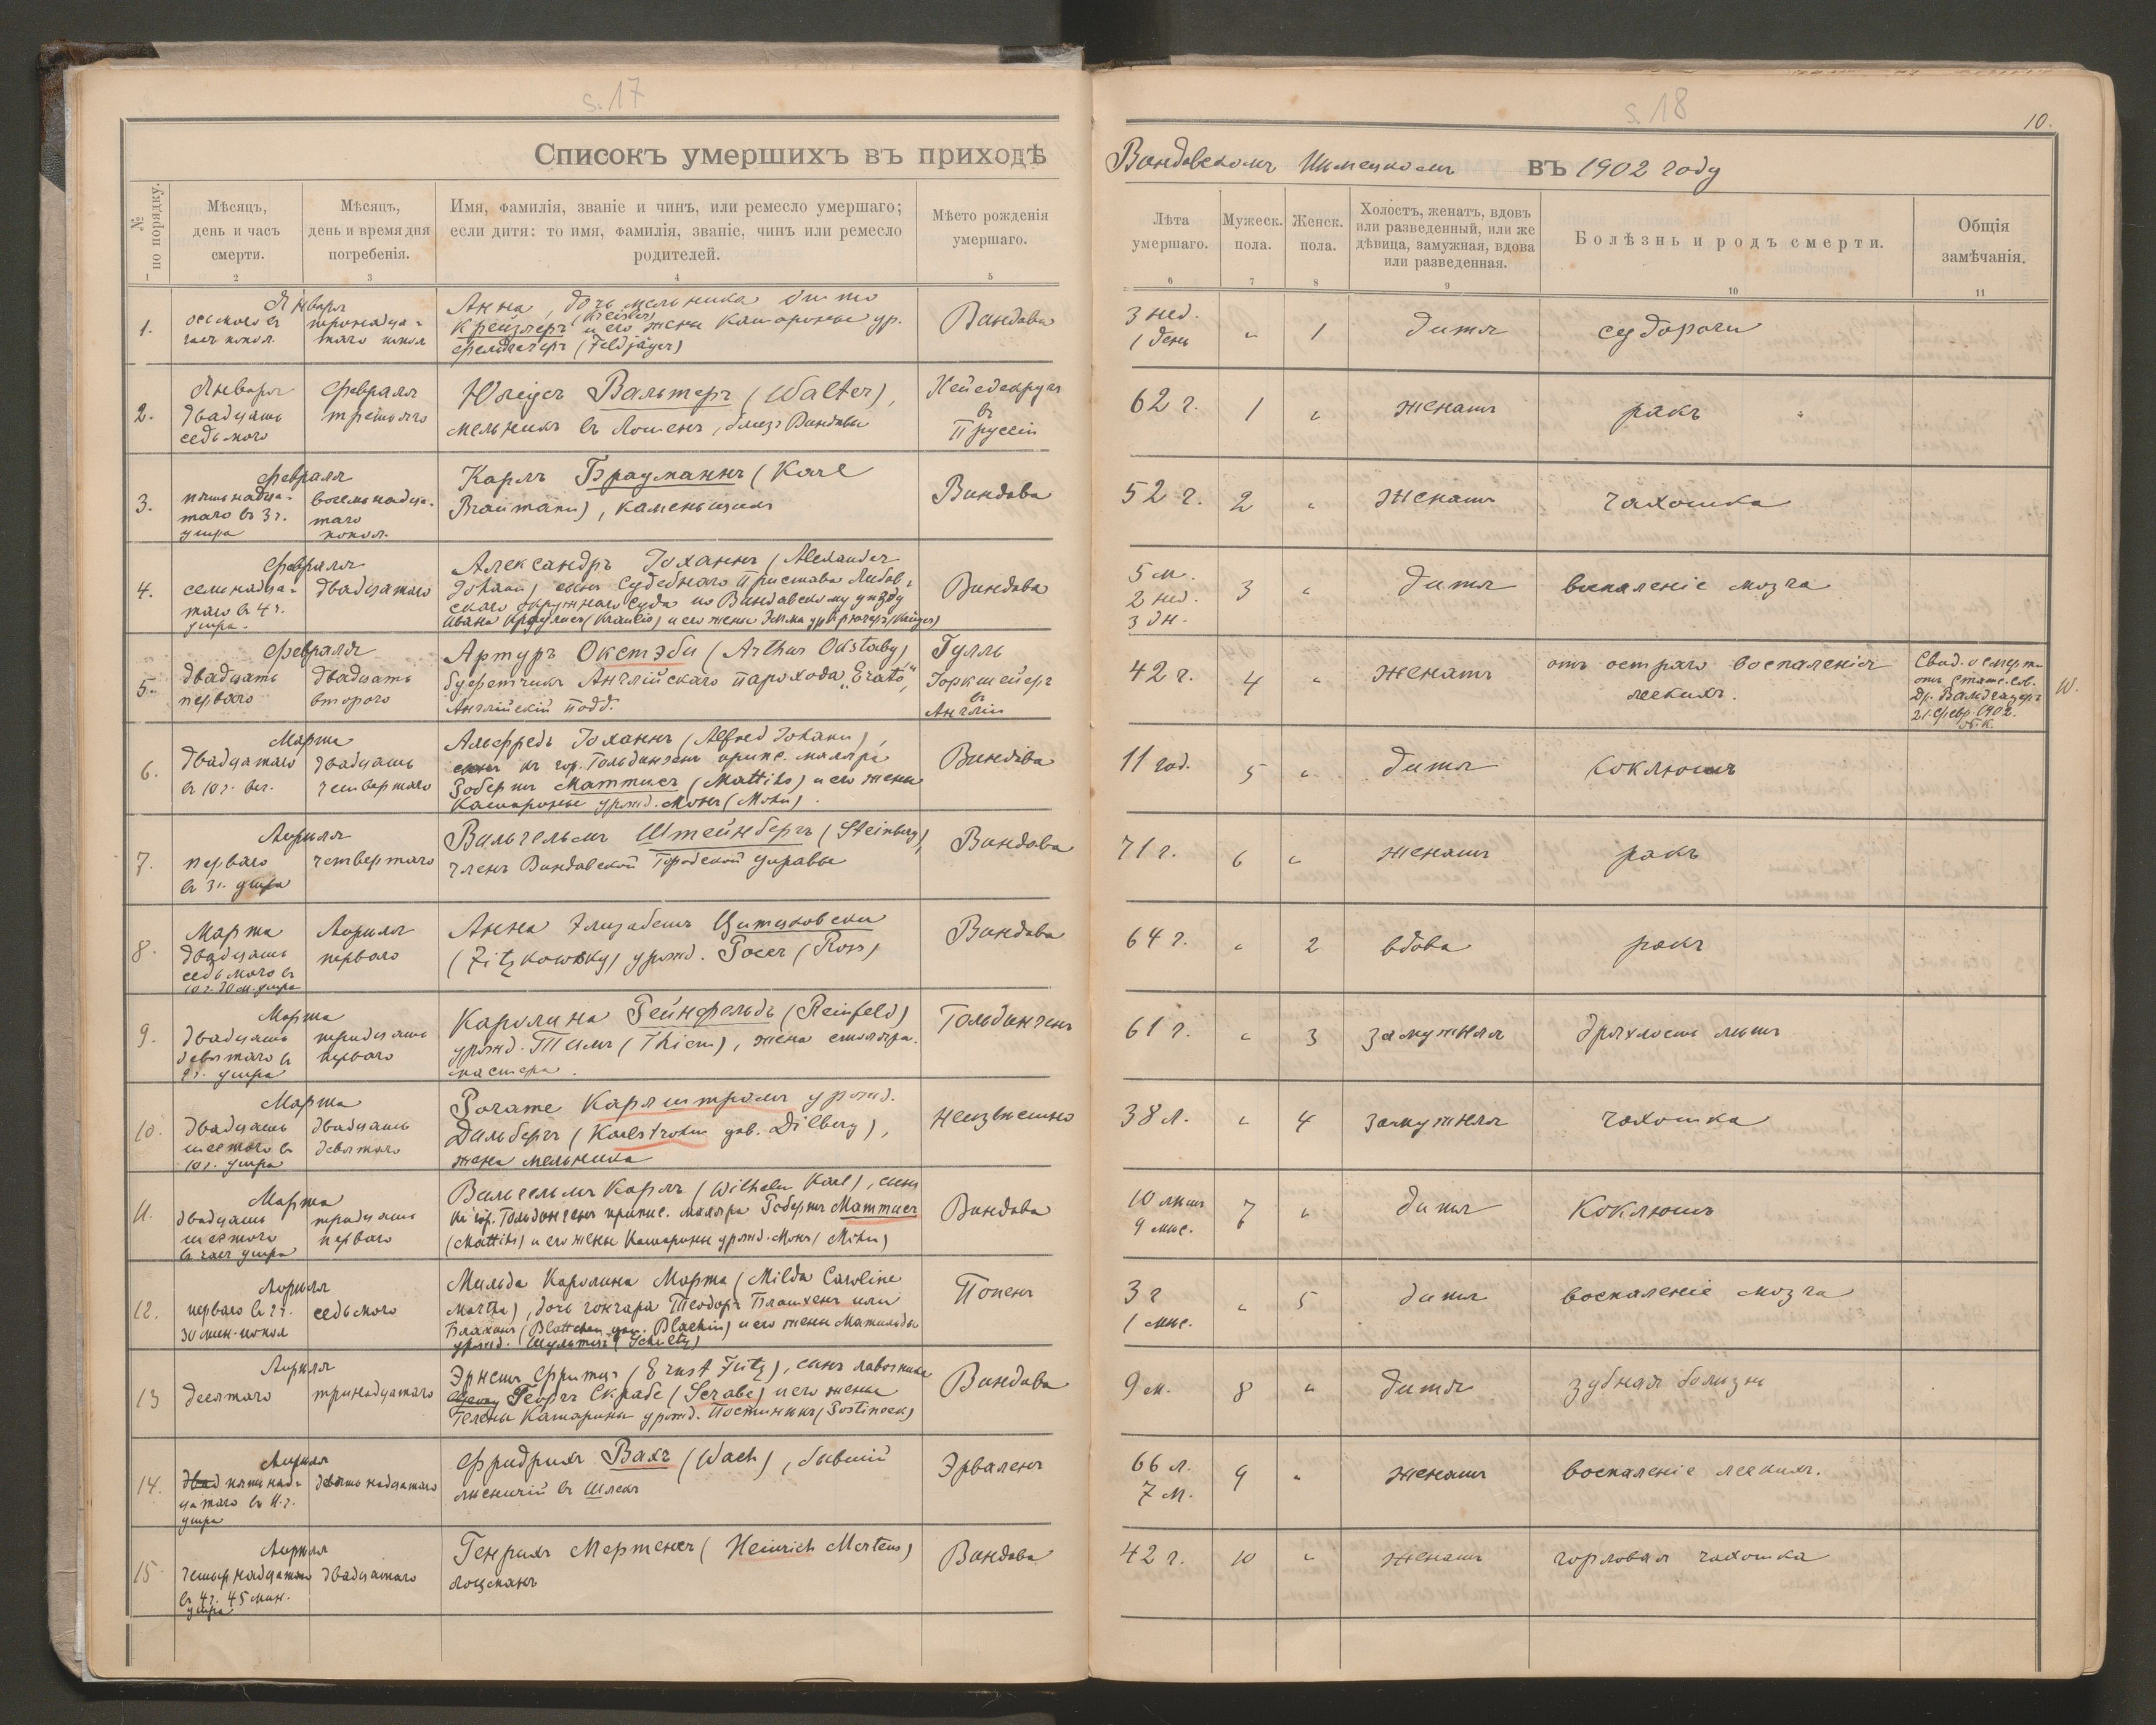 s. 17
s. 18
10.
Списокъ умершихъ въ приходѣ Виндавскомъ Нѣмецкомъ въ 1902 году
№ по порядку.
Мѣсяцъ, день и часъ смерти.
Мѣсяцъ, день и время дня погребенія.
Имя, фамилія, званіе и чинъ, или ремесло умершаго; если дитя: то имя, фамилія, званіе, чинъ или ремесло родителей.
Мѣсто рожденія умершаго.
Лѣта умершаго.
Мужеск. пола.
Женск. пола.
Холостъ, женатъ, вдовъ или разведенный, или же дѣвица, замужная, вдова или разведенная.
Болѣзнь и родъ смерти.
Общія замѣчанія.
1 2 3 4 5 6 7 8 9 10 11
1.
Января
осьмого въ
тринадца-
таго попол
Анна, дочь мельника
Крейслеръ (Kreisler) и его жены Катарины ур.
Фельдъегеръ (Feldjäger)
Виндава
3 нед.
1 день
„ 1 дитя судороги
2.
Января
двадцать
седьмого
Февраля
третьяго
Юліусъ Вальтеръ (Walter),
мельникъ въ близъ Виндавы
въ
Пруссіи
62 г. 1 „ женатъ ракъ
3.
Февраля
пятьнадца-
таго въ 3 ч.
утра
восемьнадца-
таго
попол.
Карлъ Брауманнъ (Karl
Braumann), каменьщикъ
Виндава
52 г. 2 „ женатъ чахотка
4.
Февраля
семьнадца-
таго въ 4 ч.
утра.
двадцатаго
Александръ Іоханнъ (Alexander
Johann) сынъ Судебнаго Пристава Либав-
скаго окружнаго Суда по Виндавскому уѣзду
Ивана Краулисъ (Kraulis) и его жены Эмма ур. Крюгеръ (Krüger)
Виндава
5 м.
2 нед.
3 дн.
3 „ дитя воспаленіе мозга
5.
Февраля
двадцать
перваго
двадцать
второго
Артуръ Окстэби (Arthur Oxtaby)
буфетчикъ Англійскаго парохода „Erato",
Англійскій подд.
Гулль
Іоркшейеръ
въ
Англіи
42 г. 4 „ женатъ
отъ остраго воспаленія
легкихъ.
Свид. о смерти
отъ Статс. сов.
Др. Вальдгауеръ
21. Февр. 1902.
N. К.
W.
6.
Марта
двадцатаго
въ 10 ч. веч.
двадцать
четвертаго
Альфредъ Іоханнъ (Alfred Johann),
сынъ къ гор. Гольдингенъ припис. маляра
Робертъ Маттисъ (Mattihs) и его жены
Катарины урожд. Монъ (Mohn).
Виндава
11 год. 5 „ дитя коклюшъ
7.
Апрѣля
перваго
въ 3 ч. утра
четвертаго
Вильгельмъ Штейнбергъ (Steinberg),
членъ Виндавской Городской управы
Виндава
71 г. 6 „ женатъ ракъ
8.
Марта
двадцать
седьмого въ
10 ч. 30 м. утра
Апрѣля
перваго
Анна Элизабетъ Цитцковски
(Zitzkowsky) урожд. Россъ (Ross)
Виндава
64 г. „ 2 вдова ракъ
9.
Марта
двадцать
девятаго въ
утра
тридцать
перваго
Каролина Рейнфельдъ (Reinfeld)
урожд. Тимъ (Thiem), жена столяра.
мастера.
Гольдингенъ
61 г. „ 3 замужняя дряхлость лѣтъ
10.
Марта
двадцать
шестого въ
10 ч. утра
двадцать
девятаго
Рогате Карлштромъ урожд.
Дильбергъ (Karlstrohm geb. Dilberg),
жена мельника
неизвѣстно
38 л. „ 4 замужняя чахотка
11.
Марта
двадцать
шестого
въ часъ утра
тридцать
перваго
Вильгельмъ Карлъ (Wilhelm Karl), сынъ
къ гор. Гольдингенъ припис. маляра Робертъ Маттисъ
(Mattihs) и его жены Катарины урожд. Монъ (Mohn)
Виндава
10 лѣтъ
9 мѣс.
7 „ дитя Коклюшъ
12.
Апрѣля
перваго въ 2 ч.
30 мин. попол
седьмого
Мильда Каролина Марта (Milda Caroline
Martha), дочь гончара Теодоръ Блатхенъ или
Блахинъ (Blattchen gen. Blachin) и его жены Матильды
урожд. Шультцъ (Schultz)
Попенъ
3 г
1 мѣс.
„ 5 дитя воспаленіе мозга
13
Апрѣля
десятаго
тринадцатаго
Эрнстъ Фритцъ (Ernst Fritz), сынъ лавочника
Георгъ Скрабе (Scrabe) и его жены
Гелены Катарины урожд. Постинекъ (Postineek)
Виндава
9 м. 8 „ дитя зубная болѣзнь
14.
Апрѣля
пятнад-
цатаго въ 11. ч.
утра
девятьнадцатаго
Фридрихъ Вахъ (Wach), бывшій
лѣсничій въ Шлекъ
Эрваленъ
66 л.
7 м.
9 „ женатъ воспаленіе легкихъ.
15.
Апрѣля
четырнадцатаго
въ 4 ч. 45 мин.
утра
двадцатаго
Генрихъ Мертенсъ (Heinrich Mertens)
лоцманъ
Виндава
42 г. 10 „ женатъ горловая чахотка